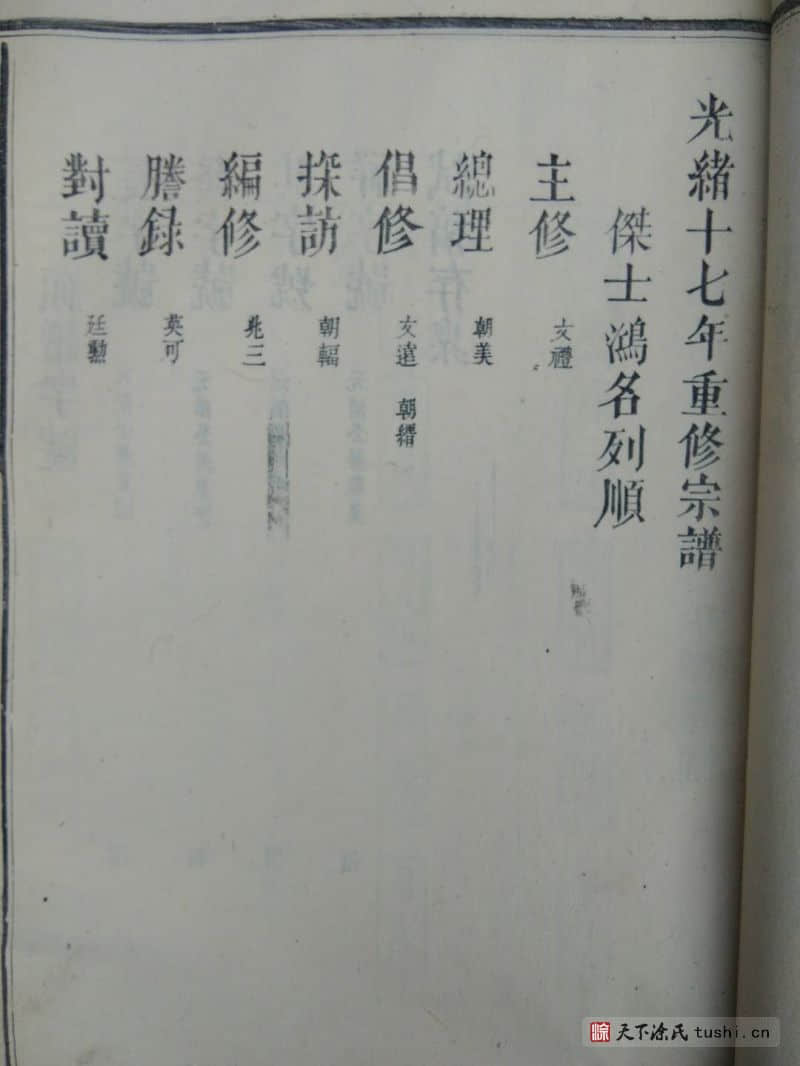 光緒十七年重修宗譜
傑士鴻名列順
主修 文禮
總理 朝美
倡修 文達 朝縉
採訪 朝輻
編修 兆三
謄録 英可
對讀 廷勲
天下涂氏 tushi.cn